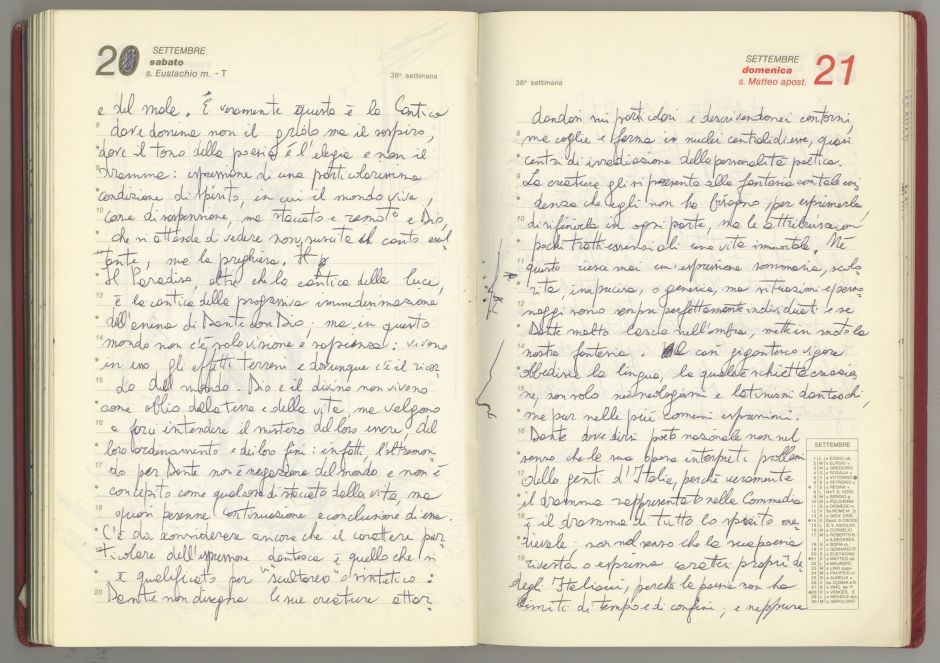 20 SETTEMBRE
sabato
s. Eustachio m. - T
38ª settimana
e del male. È veramente questa è la Cantica
dove domina non il grido ma il sospiro,
dove il tono della poesia è l'elegia e non il
dramma: espressione di una particolarissima
condizione di spirito, in cui il mondo vive,
come di sospensione, ma staccato e remoto e Dio,
che si attende di vedere non suscita il canto esul
tante, ma la preghiera. Il p
Il Paradiso, oltre che la cantica della luce,
è la cantica della progressiva immedesimazione
dell'anima di Dante con Dio: ma in questo
mondo non c'è solo visione e sapienza: vivono
in esso gli affetti terreni e dovunque c'è il ricor
do del mondo. Dio e il divino non vivono
come oblio della terra e della vita, ma valgono
a farci intendere il mistero del loro essere, del
loro ordinamento e dei loro fini: infatti, l'oltremon
do per Dante non è negazione del mondo e non è
concepito come qualcosa di staccato dalla vita, ma
quasi perenne continuazione e conclusione di essa.
C'è da considerare ancora che il carattere par
ticolare dell'espressione dantesca è quello che si
è qualificato per "scultoreo" o sintetico:
Dante non disegna le sue creature attar
8
9
10
11
12
13
14
15
16
17
18
19
20
SETTEMBRE
domenica
s. Matteo apost.
21
38ª settimana
dandosi sui particolari e descrivendone i contorni,
ma coglie e ferma in nuclei centrali di esse, quasi
centri di irradiazione della personalità poetica.
La creatura gli si presenta alla fantasia con tale evi
denza che egli non ha bisogno, per esprimerla,
di rifinirla in ogni parte, ma le attribuisce con
pochi tratti essenziali una vita immortale. Né
questo riesce mai un'espressione sommaria, scolo
rita, imprecisa, o generica, ma situazioni e perso
naggi sono sempre perfettamente individuati e se
Dante molto lascia nell'ombra, mette in moto la
nostra fantasia. A così gigantesco vigore
obbedisce la lingua, la quale è schietta creazio
ne, non solo nei neologismi e latinismi danteschi,
ma pur nelle più comuni espressioni.
Dante deve dirsi poeta nazionale non nel
senso che la sua opera interpreti problemi
delle genti d'Italia, perché veramente
il dramma rappresentato nella Commedia
è il dramma di tutto lo spirito me
dievale; non nel senso che la sua poesia
diventa o esprima caratteri propri de
degli Italiani, perché la poesia non ha
limiti di tempo e di confini; e neppure
8
9
10
11
12
13
14
15
16
17
18
19
20
SETTEMBRE